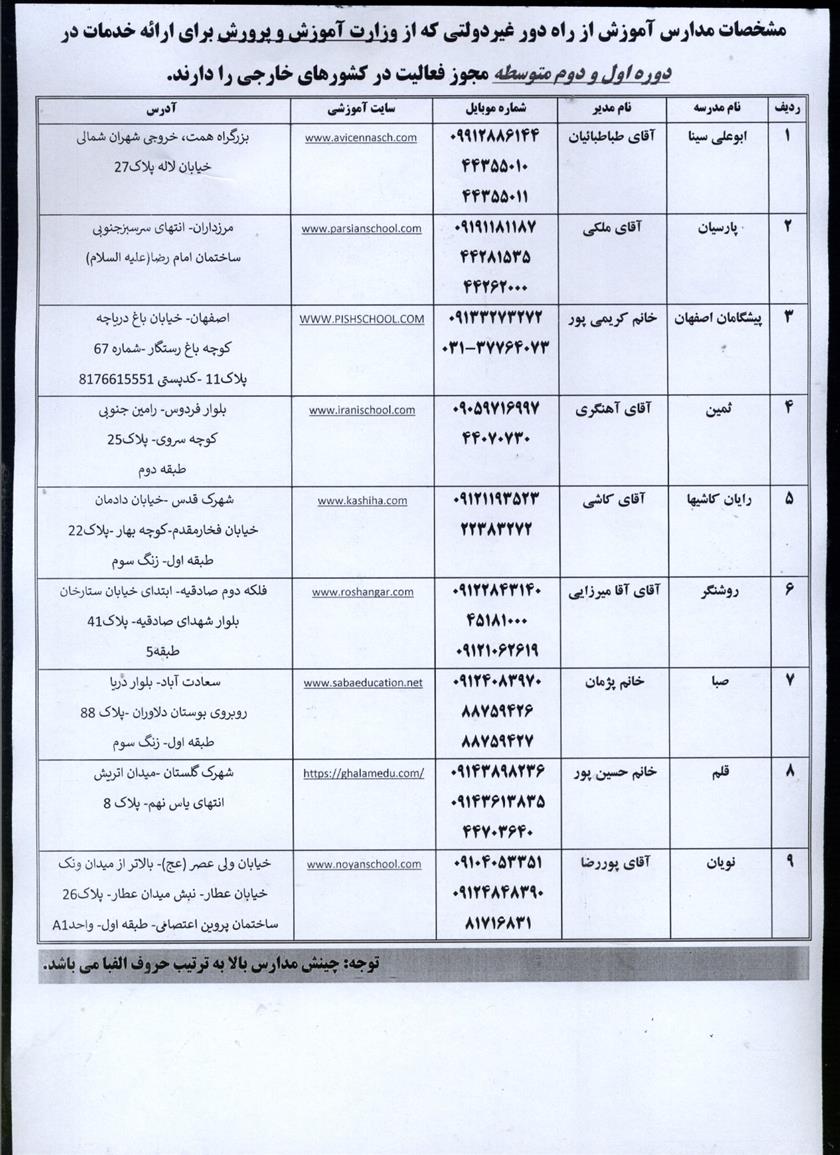 مشخصات مدارس آموزش از راه دور غیردولتی که از وزارت آموزش و پرورش برای ارائه خدمات در
دوره اول و دوم متوسطه مجوز فعالیت در کشورهای خارجی را دارند.
ردیف نام مدرسه نام مدیر شماره موبایل سایت آموزشی آدرس
۱ ابوعلی سینا آقای طباطبائیان ۰۹۹۱۲۸۸۶۱۴۴ www.avicennasch.com بزرگراه همت، خروجی شهران شمالی
۴۴۳۵۵۰۱۰ خیابان لاله پلاک27
۴۴۳۵۵۰۱۱
۲ پارسیان آقای ملکی ۰۹۱۹۱۱۸۱۱۸۷ www.parsianschool.com مرزداران- انتهای سرسبزجنوبی
۴۴۲۸۱۵۳۵ ساختمان امام رضا(علیه السلام)
۴۴۲۶۲۰۰۰
۳ پیشگامان اصفهان خانم کریمی پور ۰۹۱۳۳۲۷۳۲۷۲ WWW.PISHSCHOOL.COM اصفهان- خیابان باغ دریاچه
۰۳۱-۳۷۷۶۴۰۷۳ کوچه باغ رستگار -شماره 67
پلاک11 -کدپستی 8176615551
۴ ثمین آقای آهنگری ۰۹۰۵۹۷۱۶۹۹۷ www.iranischool.com بلوار فردوس- رامین جنوبی
۴۴۰۷۰۷۳۰ کوچه سروی- پلاک25
طبقه دوم
۵ رایان کاشیها آقای کاشی ۰۹۱۲۱۱۹۳۵۲۳ www.kashiha.com شهرک قدس -خیابان دادمان
۲۲۳۸۳۲۷۲ خیابان فخارمقدم-کوچه بهار -پلاک22
طبقه اول- زنگ سوم
۶ روشنگر آقای آقا میرزایی ۰۹۱۲۲۸۴۳۱۴۰ www.roshangar.com فلکه دوم صادقیه- ابتدای خیابان ستارخان
۴۵۱۸۱۰۰۰ بلوار شهدای صادقیه- پلاک41
۰۹۱۲۱۰۶۲۶۱۹ طبقه5
۷ صبا خانم پژمان ۰۹۱۲۴۰۸۳۹۷۰ www.sabaeducation.net سعادت آباد- بلوار دریا
۸۸۷۵۹۴۲۶ روبروی بوستان دلاوران -پلاک 88
۸۸۷۵۹۴۲۷ طبقه اول- زنگ سوم
۸ قلم خانم حسین پور ۰۹۱۴۳۸۹۸۲۳۶ https://ghalamedu.com/ شهرک گلستان -میدان اتریش
۰۹۱۴۳۶۱۳۸۳۵ انتهای یاس نهم- پلاک 8
۴۴۷۰۳۶۴۰
۹ نویان آقای پوررضا ۰۹۱۰۴۰۵۳۳۵۱ www.noyanschool.com خیابان ولی عصر (عج)- بالاتر از میدان ونک
۰۹۱۲۴۸۴۸۳۹۰ خیابان عطار- نبش میدان عطار- پلاک26
۸۱۷۱۶۸۳۱ ساختمان پروین اعتصامی- طبقه اول- واحدA1
توجه: چینش مدارس بالا به ترتیب حروف الفبا می باشد.